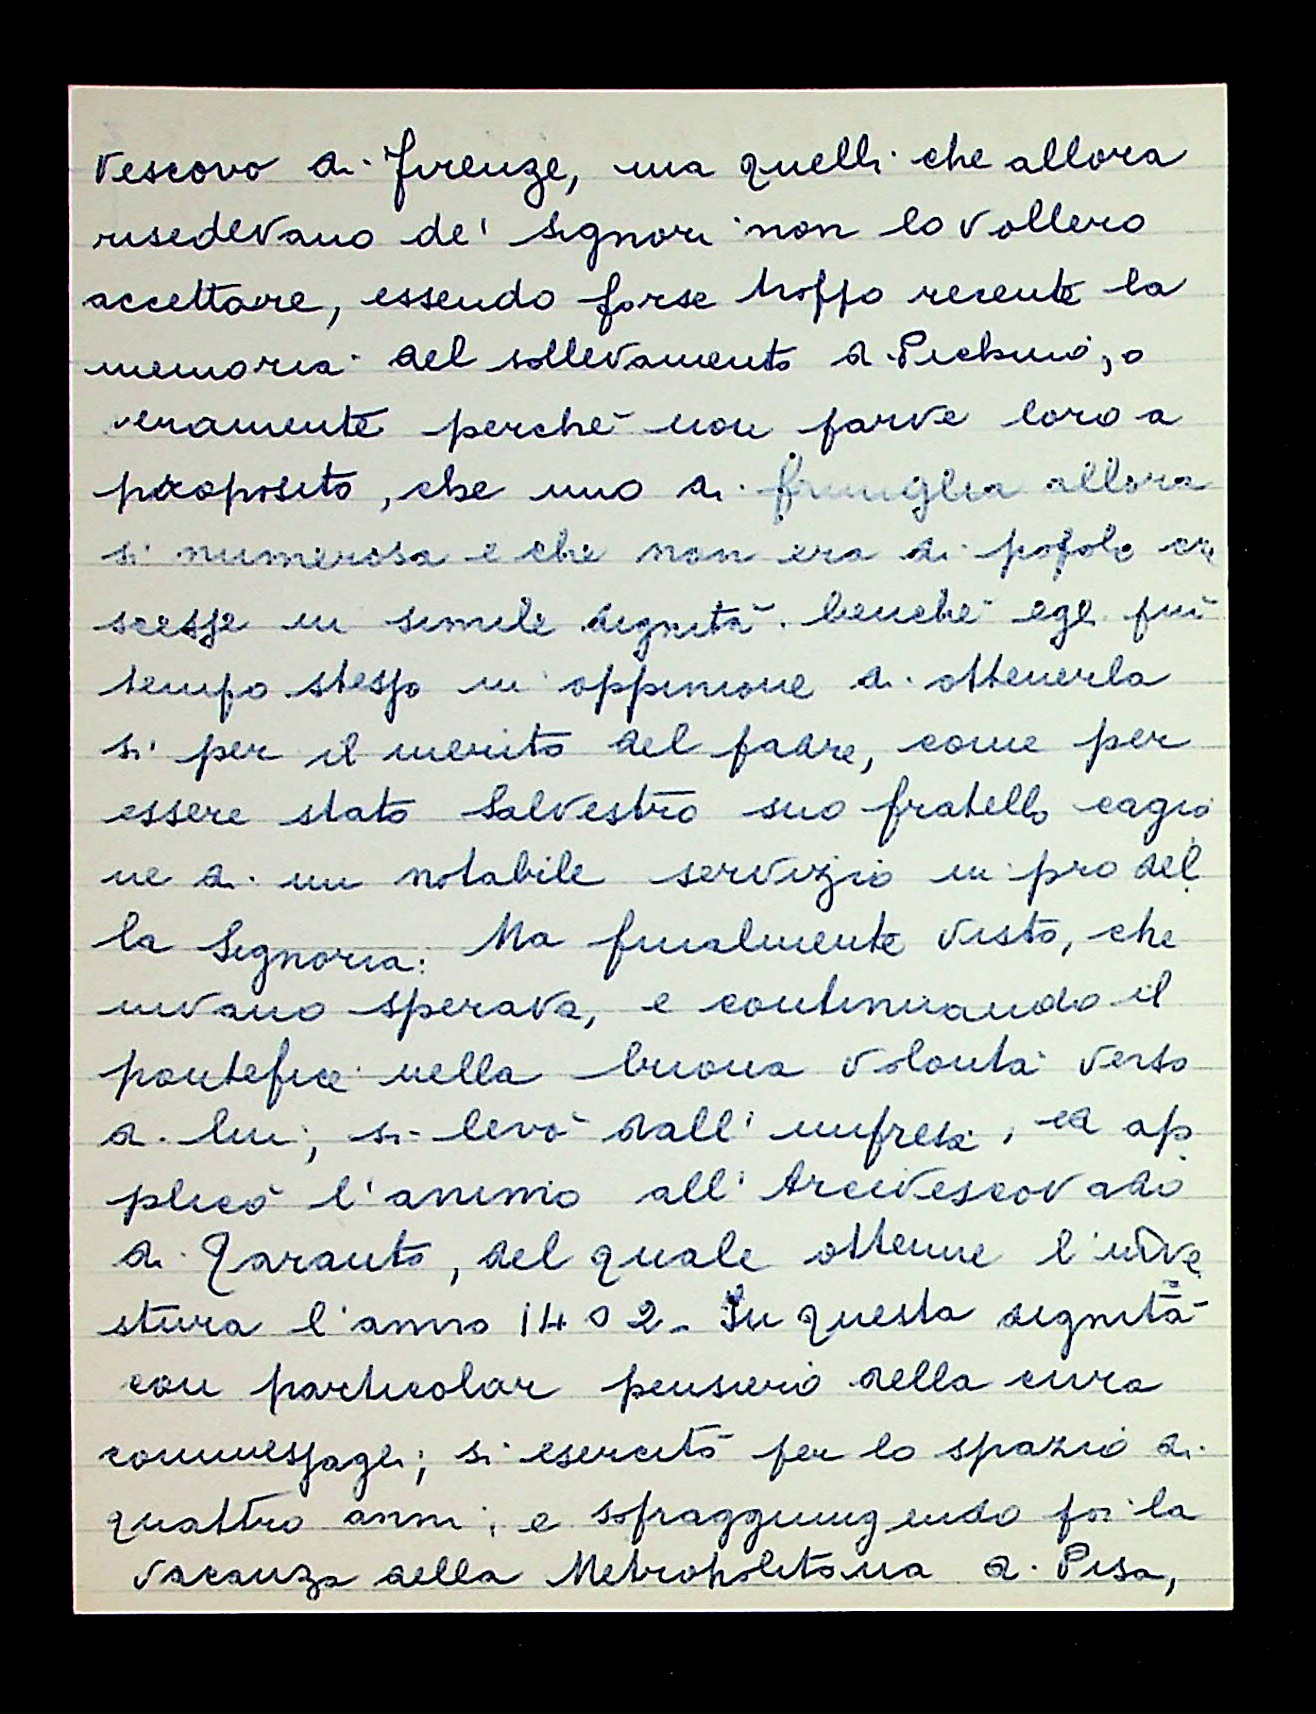 Vescovo di Firenze, ma quelli che allora
risedevano de' Signori non lo vollero
accettare, essendo forse troppo recente la
memoria del sollevamento di Pichino, o
veramente perchè non parve loro a
proposito, che uno di famiglia allora
sì numerosa e che non era di popolo cre
scesse in simile dignità. benchè egli più
tempo stesso in oppinione di ottenerla
sì per il merito del padre, come per
essere stato Salvestro suo fratello cagio
ne di un notabile servizio in pro del
la Signoria: Ma finalmente visto, che
invano sperava, e continuando il
pontefice nella buona volontà verso
di lui, si levò dall' impresa, ed ap
plicò l'animo all' Arcivescovado
di Taranto, del quale ottenne l'inve
stura l'anno 1402. In questa dignità
con particolar pensiero della cura
commessagli; si esercitò per lo spazio di
quattro anni; e sopraggiungendo poi la
vacanza della Metropolitana di Pisa,